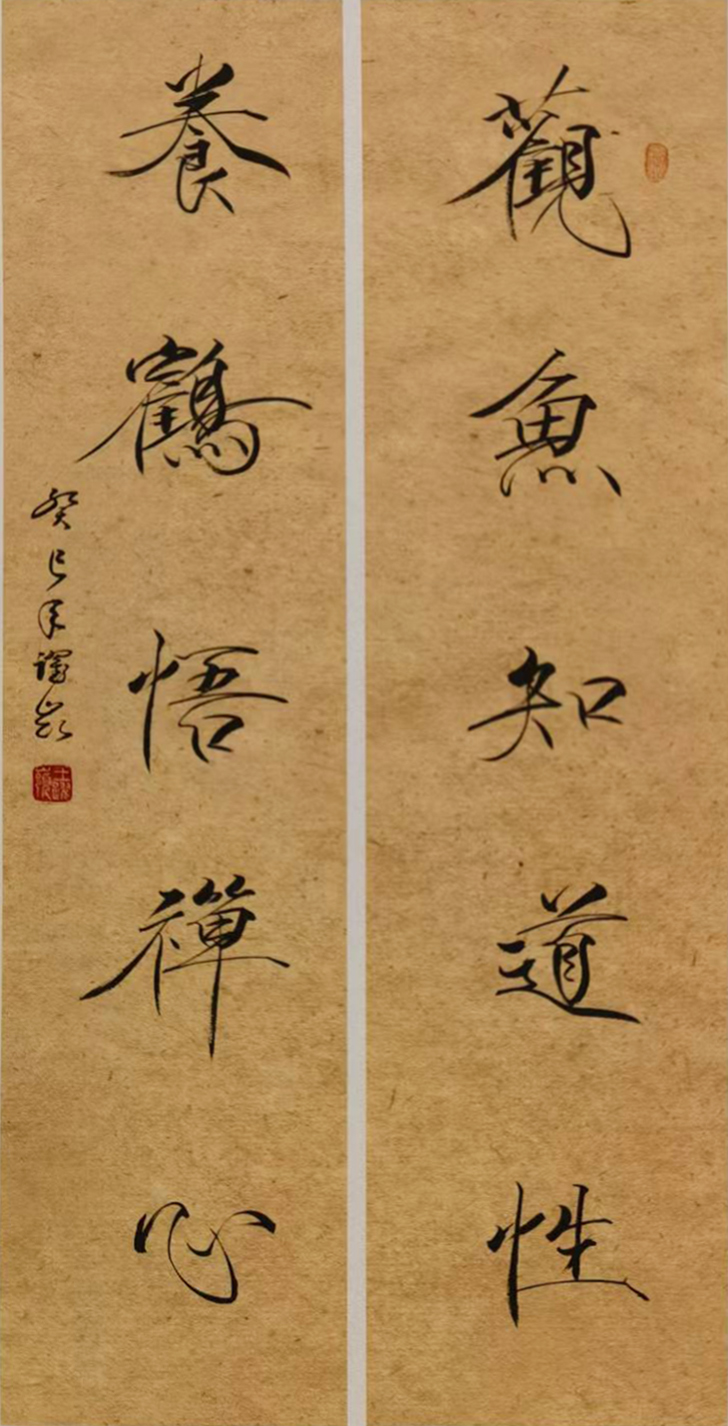 觀魚知道性
養鶴悟禪心
癸巳年譯嵗